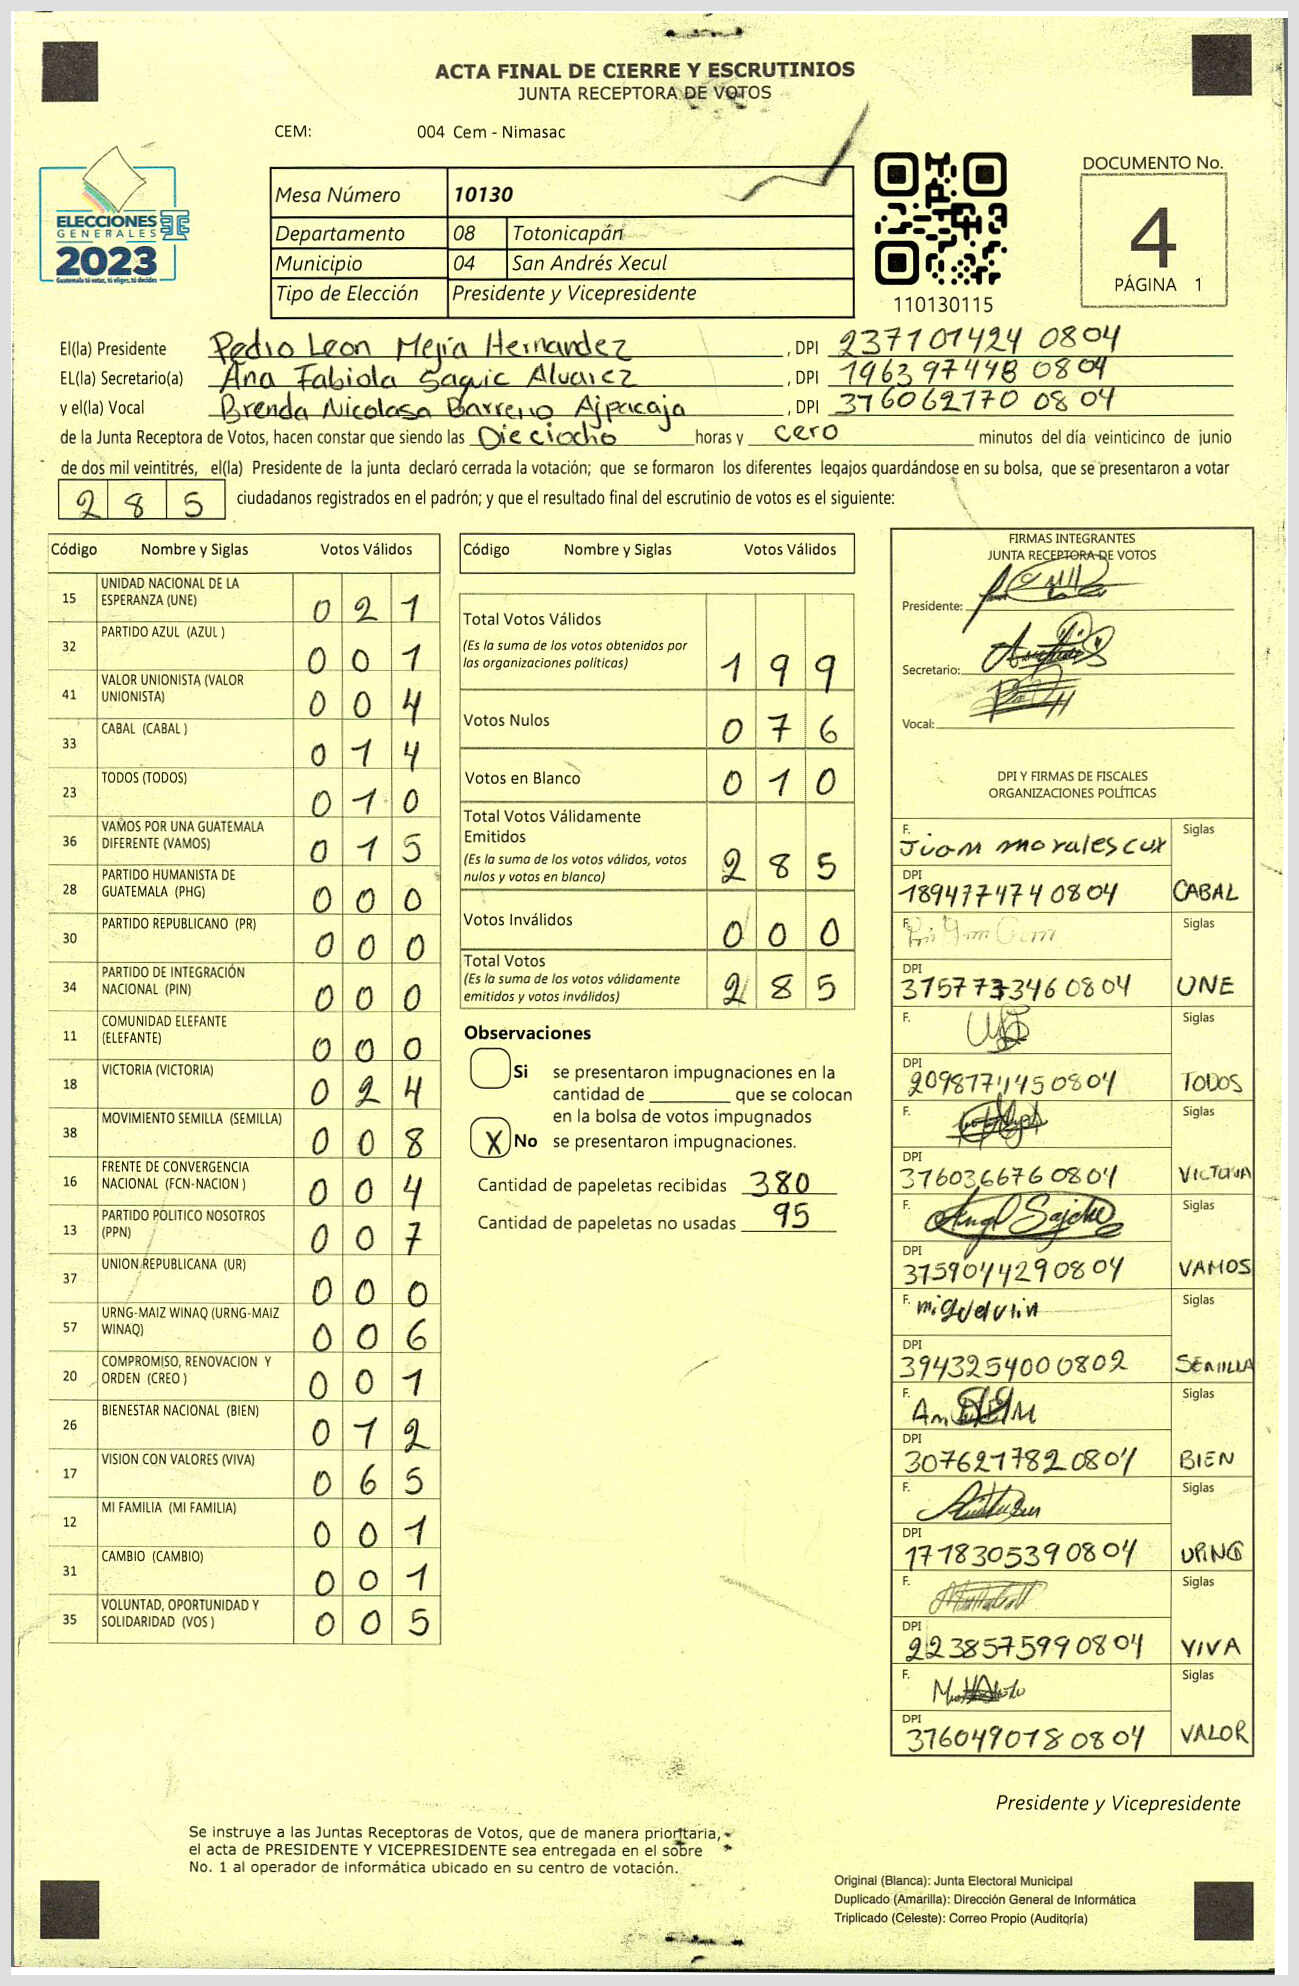 ACTA FINAL DE CIERRE Y ESCRUTINIOS
JUNTA RECEPTORA DE VOTOS
CEM: 004 Cem - Nimasac
ELECCIONES
GENERALES
2023
Guatemala tú votas, tú eliges, tú decides
Mesa Número 10130
Departamento 08 Totonicapán
Municipio 04 San Andrés Xecul
Tipo de Elección Presidente y Vicepresidente
110130115
DOCUMENTO No.
4
PÁGINA 1
El(la) Presidente Pedro Leon Mejía Hernandez, DPI 237101424 0804
EL(la) Secretario(a) Ana Fabiola Saquic Alvarez, DPI 196397448 0804
y el(la) Vocal Brenda Nicolasa Barreno Ajpacaja, DPI 376062770 0804
de la Junta Receptora de Votos, hacen constar que siendo las Dieciocho horas y cero minutos del día veinticinco de junio
de dos mil veintitrés, el(la) Presidente de la junta declaró cerrada la votación; que se formaron los diferentes legajos guardándose en su bolsa, que se presentaron a votar
285 ciudadanos registrados en el padrón; y que el resultado final del escrutinio de votos es el siguiente:
Código Nombre y Siglas Votos Válidos
15 UNIDAD NACIONAL DE LA ESPERANZA (UNE) 021
32 PARTIDO AZUL (AZUL ) 001
41 VALOR UNIONISTA (VALOR UNIONISTA) 004
33 CABAL (CABAL ) 014
23 TODOS (TODOS) 010
36 VAMOS POR UNA GUATEMALA DIFERENTE (VAMOS) 015
28 PARTIDO HUMANISTA DE GUATEMALA (PHG) 000
30 PARTIDO REPUBLICANO (PR) 000
34 PARTIDO DE INTEGRACIÓN NACIONAL (PIN) 000
11 COMUNIDAD ELEFANTE (ELEFANTE) 000
18 VICTORIA (VICTORIA) 024
38 MOVIMIENTO SEMILLA (SEMILLA) 008
16 FRENTE DE CONVERGENCIA NACIONAL (FCN-NACION ) 004
13 PARTIDO POLITICO NOSOTROS (PPN) 007
37 UNION REPUBLICANA (UR) 000
57 URNG-MAIZ WINAQ (URNG-MAIZ WINAQ) 006
20 COMPROMISO, RENOVACION Y ORDEN (CREO ) 001
26 BIENESTAR NACIONAL (BIEN) 012
17 VISION CON VALORES (VIVA) 065
12 MI FAMILIA (MI FAMILIA) 001
31 CAMBIO (CAMBIO) 001
35 VOLUNTAD, OPORTUNIDAD Y SOLIDARIDAD (VOS ) 005
Código Nombre y Siglas Votos Válidos
Total Votos Válidos
(Es la suma de los votos obtenidos por
las organizaciones políticas) 199
Votos Nulos 076
Votos en Blanco 010
Total Votos Válidamente
Emitidos
(Es la suma de los votos válidos, votos
nulos y votos en blanco) 285
Votos Inválidos 000
Total Votos
(Es la suma de los votos válidamente
emitidos y votos inválidos) 285
Observaciones
Si se presentaron impugnaciones en la
cantidad de ________ que se colocan
en la bolsa de votos impugnados
X No se presentaron impugnaciones.
Cantidad de papeletas recibidas 380
Cantidad de papeletas no usadas 95
FIRMAS INTEGRANTES
JUNTA RECEPTORA DE VOTOS
Presidente:
Secretario:
Vocal:
DPI Y FIRMAS DE FISCALES
ORGANIZACIONES POLÍTICAS
F. Juan morales cux Siglas
DPI 189477474 0804 CABAL
F. Siglas
DPI 0804 UNE
F. Siglas
DPI 0804 TODOS
F. Siglas
DPI 376036676 0804 VICTORIA
F. Angel Sajche Siglas
DPI 375904429 0804 VAMOS
F. Siglas
DPI 394325400 0802 SEMILLA
F. Siglas
DPI 307621782 0804 BIEN
F. Siglas
DPI 171830539 0804 URNG
F. Siglas
DPI 223857599 0804 VIVA
F. Siglas
DPI 376049078 0804 VALOR
Presidente y Vicepresidente
Se instruye a las Juntas Receptoras de Votos, que de manera prioritaria,
el acta de PRESIDENTE Y VICEPRESIDENTE sea entregada en el sobre
No. 1 al operador de informática ubicado en su centro de votación.
Original (Blanca): Junta Electoral Municipal
Duplicado (Amarilla): Dirección General de Informática
Triplicado (Celeste): Correo Propio (Auditoría)